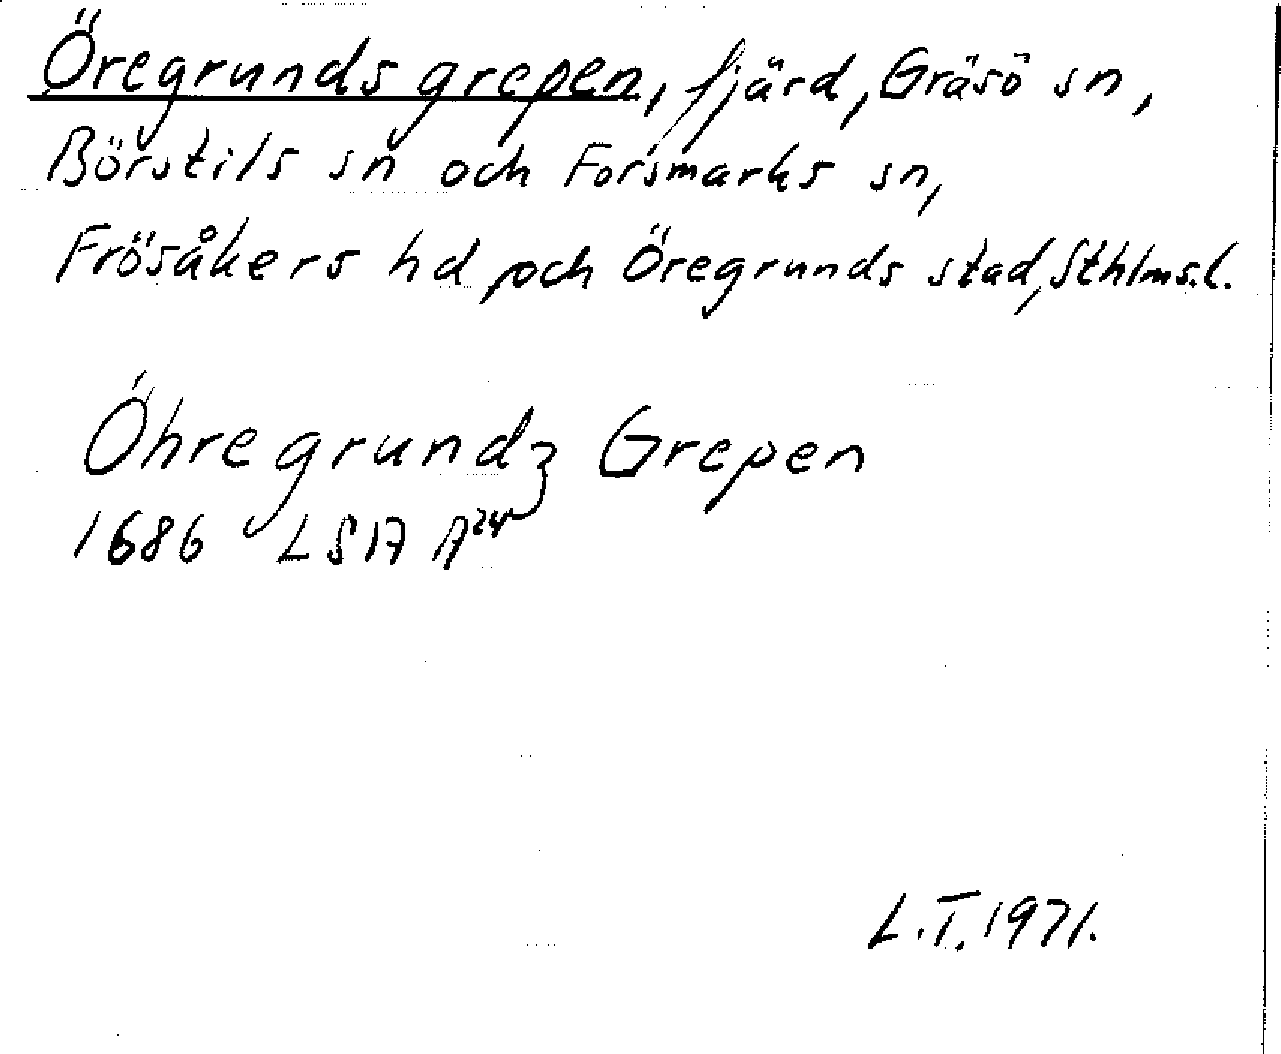 Öregrundsgrepen, fjärd, Gräsö sn,
Börstils sn och Forsmarks sn,
Frösåkers hd, och Öregrunds stad, Sthlms.l.
Öhregrundz Grepen
1686 LSA A24
L.T. 1971.